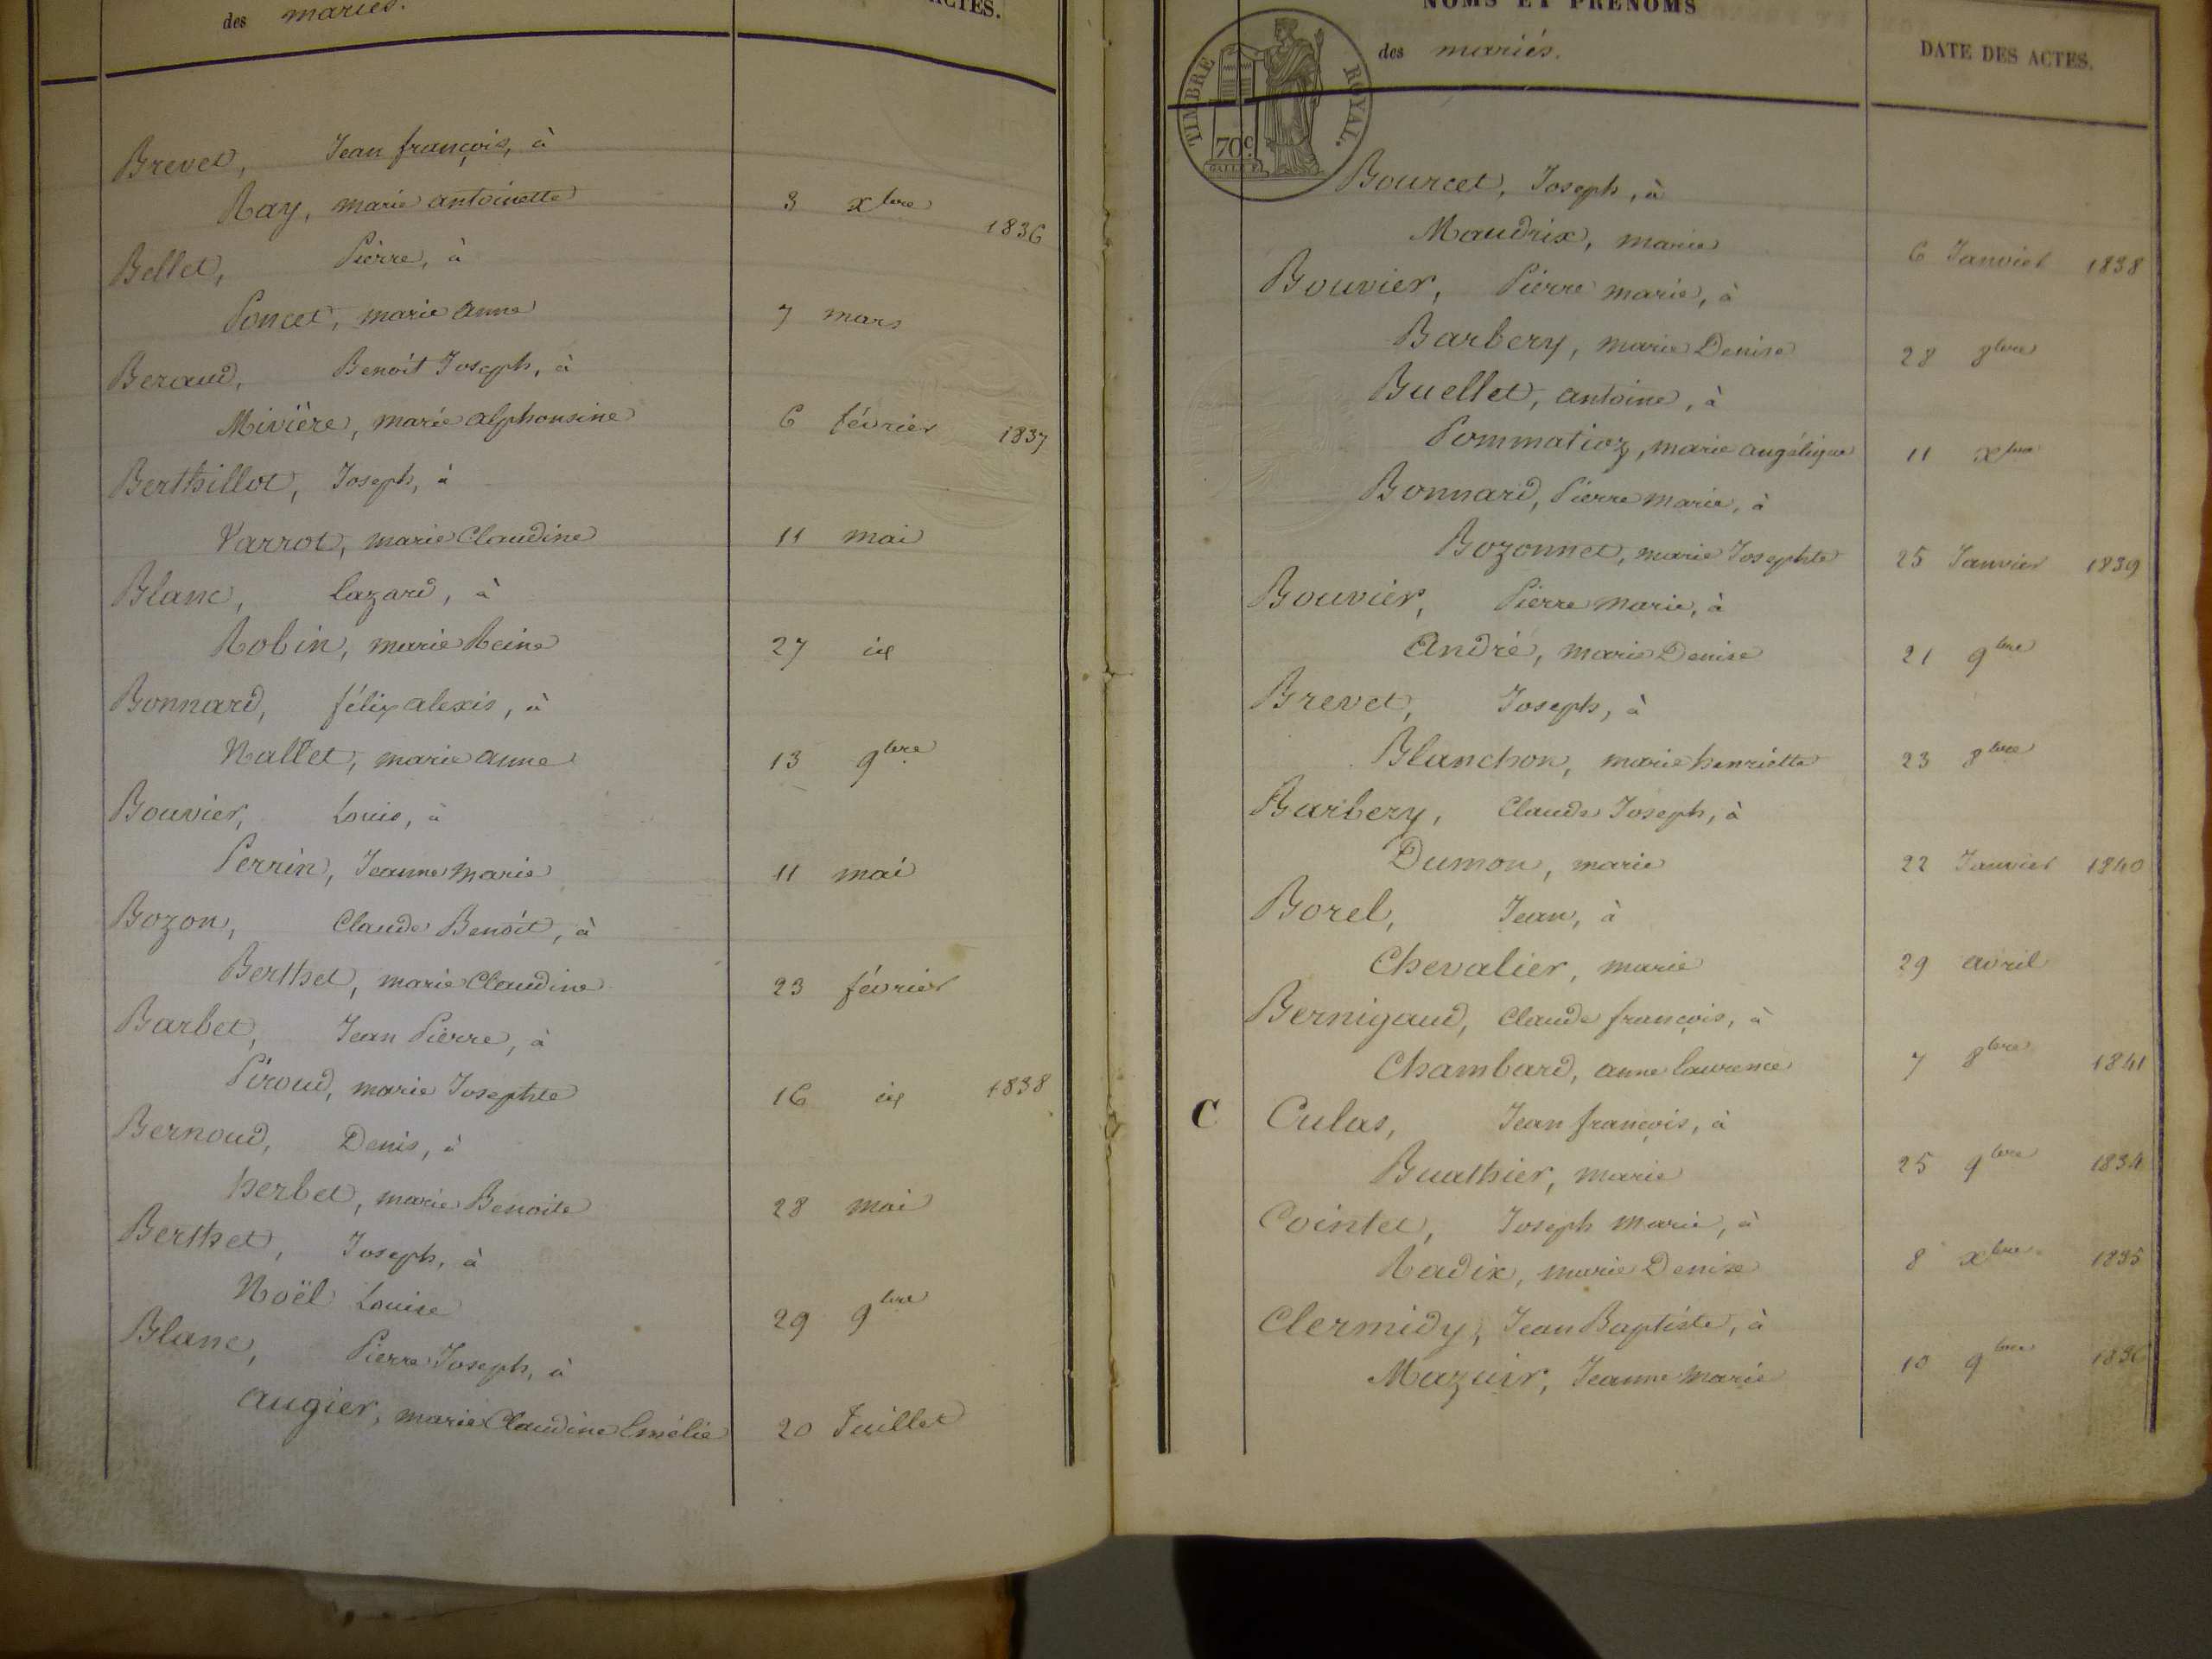 des mariés.
ACTES.
Brevet, Jean françois, à
Ray, marie antoinette 3 xbre 1836
Bellet, Pierre, à
Poncet, marie anne 7 mars
Beraud, Benoit Joseph, à
Mivière, marie alphonsine 6 février 1837
Berthillot, Joseph, à
Varrot, marie Claudine 11 mai
Blanc, Lazard, à
Robin, marie Reine 27 id
Bonnard, félix alexis, à
Nallet, marie anne 13 9bre
Bouvier, Louis, à
Perrin, Jeanne marie 11 mai
Bozon, Claude Benoit, à
Berthet, marie Claudine 23 février
Barbet, Jean Pierre, à
Piroud, marie Josephte 16 id 1838
Bernoud, Denis, à
herbet, marie Benoite 28 mai
Berthet, Joseph, à
Noël Louise 29 9bre
Blanc, Pierre Joseph, à
augier, marie Claudine Emélie 20 Juillet
NOMS ET PRÉNOMS
des mariés.
DATE DES ACTES.
TIMBRE ROYAL.
70c.
Bourcet, Joseph, à
Maudrix, marie 6 Janvier 1838
Bouvier, Pierre marie, à
Barbery, marie Denise 28 8bre
Buellet, antoine, à
Pommatioz, marie angélique 11 xbre
Bonnard, Pierre marie, à
Bozonnet, marie Josephte 25 Janvier 1839
Bouvier, Pierre marie, à
André, marie Denise 21 9bre
Brevet, Joseph, à
Blanchon, marie henriette 23 8bre
Barbery, Claude Joseph, à
Dumon, marie 22 Janvier 1840
Borel, Jean, à
Chevalier, marie 29 avril
Bernigaud, Claude françois, à
Chambard, anne laurence 7 8bre 1841
C Culas, Jean françois, à
Buathier, marie 25 9bre 1834
Cointet, Joseph marie, à
Radix, marie Denise 8 xbre 1835
Clermidy, Jean Baptiste, à
Mazuir, Jeanne marie 10 9bre 1836